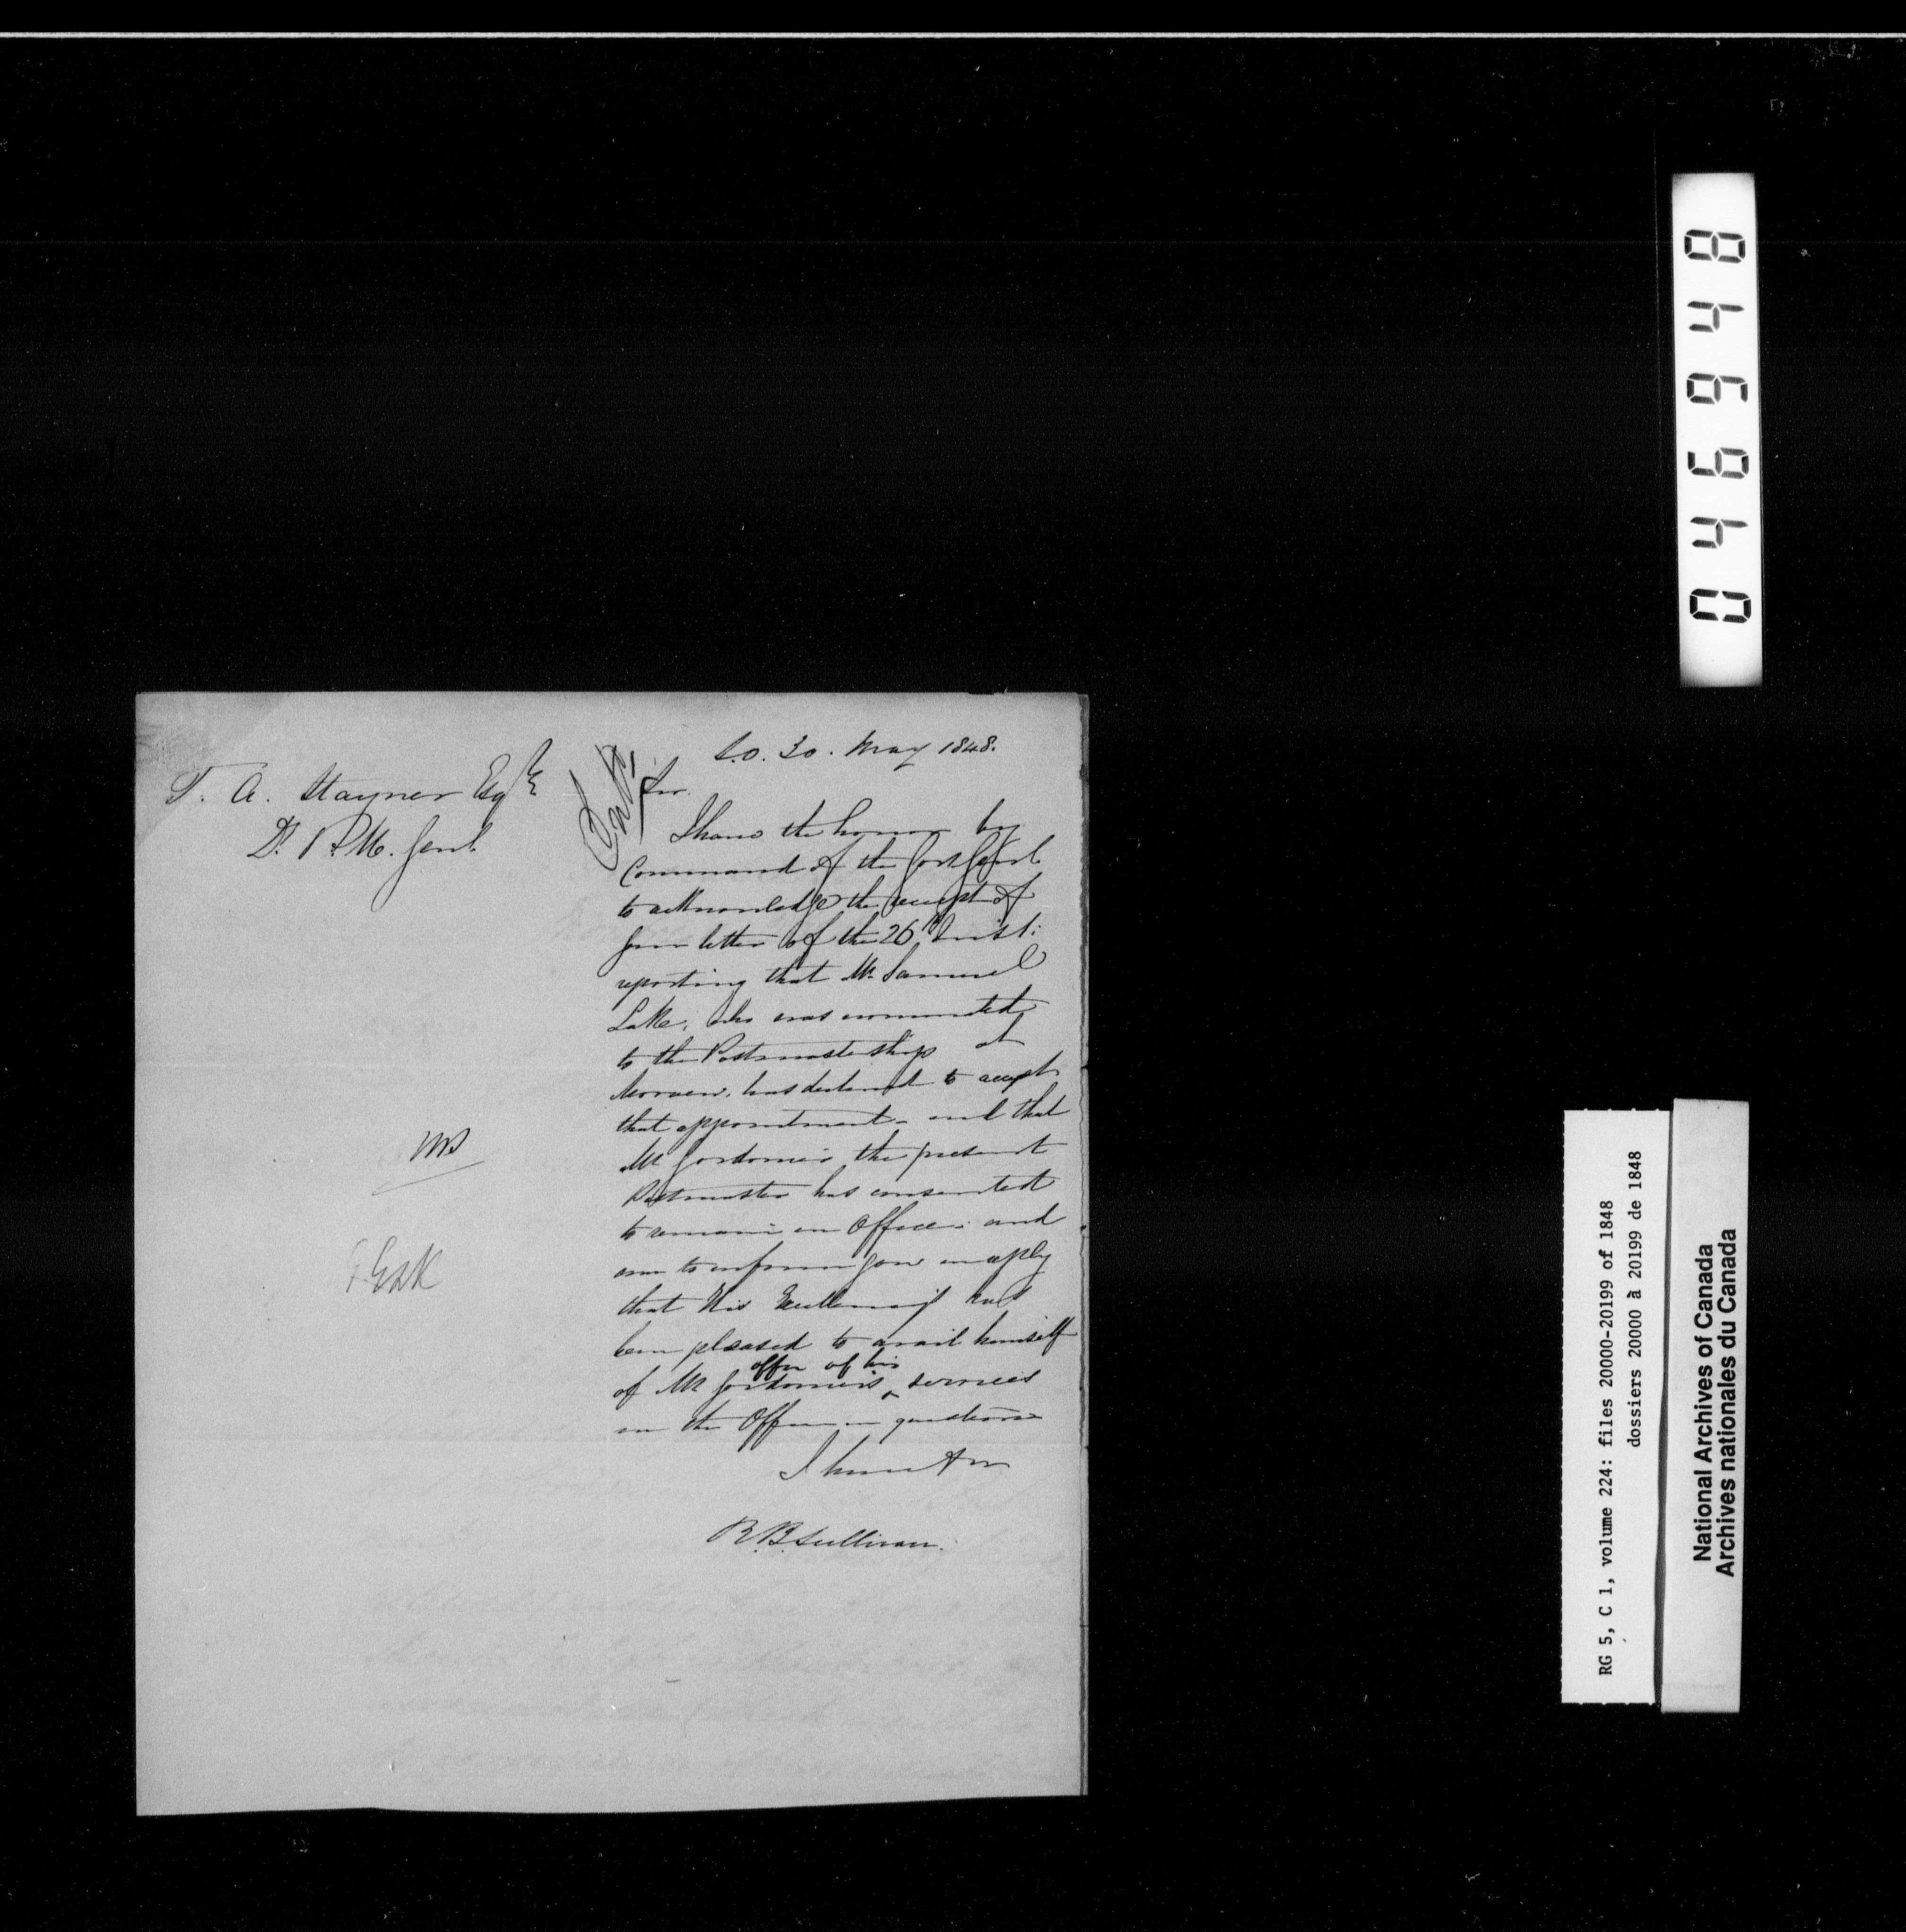 S.O. 30. May 1848.
T. A. Stayner Esqre
D. P. M. Genl.
Sir.
I have the honor by
Command of the Govr Genl
to acknowledge the receipt of
your letter of the 26th Inst:
reporting that Mr. Samuel
Lake, who was nominated
to the Postmastership at
Morven, has declined to accept
that appointment - and that
Mr Gordonier the present
Postmaster has consented
to remain in Office: and
am to inform you in reply
that His Excellency has
been pleased to avail himself
of Mr Gordonier's offer of his services
in the Office in question
I have &c
R.B. Sullivan.
048648
RG 5, C 1, volume 224: files 20000-20199 of 1848
dossiers 20000 à 20199 de 1848
National Archives of Canada
Archives nationales du Canada